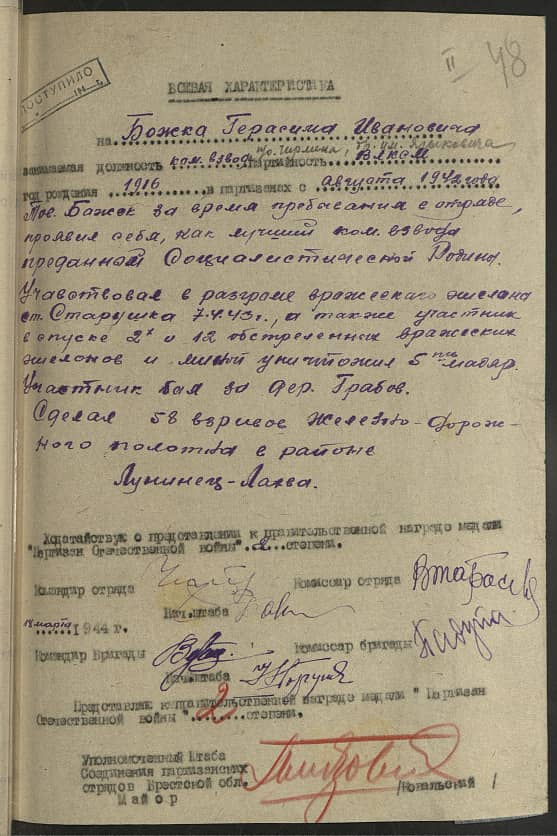 ПОСТУПИЛО
194 г.
II 48
БОЕВАЯ ХАРАКТЕРИСТИКА
на Божка Герасима Ивановича
занимаемая должность ком. взвода п/о. Чирлина, бр. им. Партийность ВЛКСМ
год рождения 1916 в партизанах с августа 1942 года
Тов. Божек за время пребывания в отряде,
проявил себя, как лучший ком. взвода
преданный Социалистической Родины.
Учавствовал в разгроме вражеского эшелона
ст. Старушка 7.4.43г., а также участник
в спуске 2х и 12 обстреленных вражеских
эшелонов и миной уничтожил 5ть мадяр.
Участник боя за дер. Грабов.
Сделал 58 взривов железно-дорож-
ного полотна в районе
Лунинец-Лахва.
Ходатайствую о представлении к правительственной награде медали
"Партизан Отечественной войны" 2 степени.
Командир отряда
Комиссар отряда
Нач.штаба
18 марта 1944 г.
Командир Бригады
Комиссар бригады
Нач.штаба
Представляю к правительственной награде медали " Партизан
Отечественной войны " 2 степени.
Уполномоченный Штаба
Соединения партизанских
отрядов Брестской обл.
Майор /Ковальский /